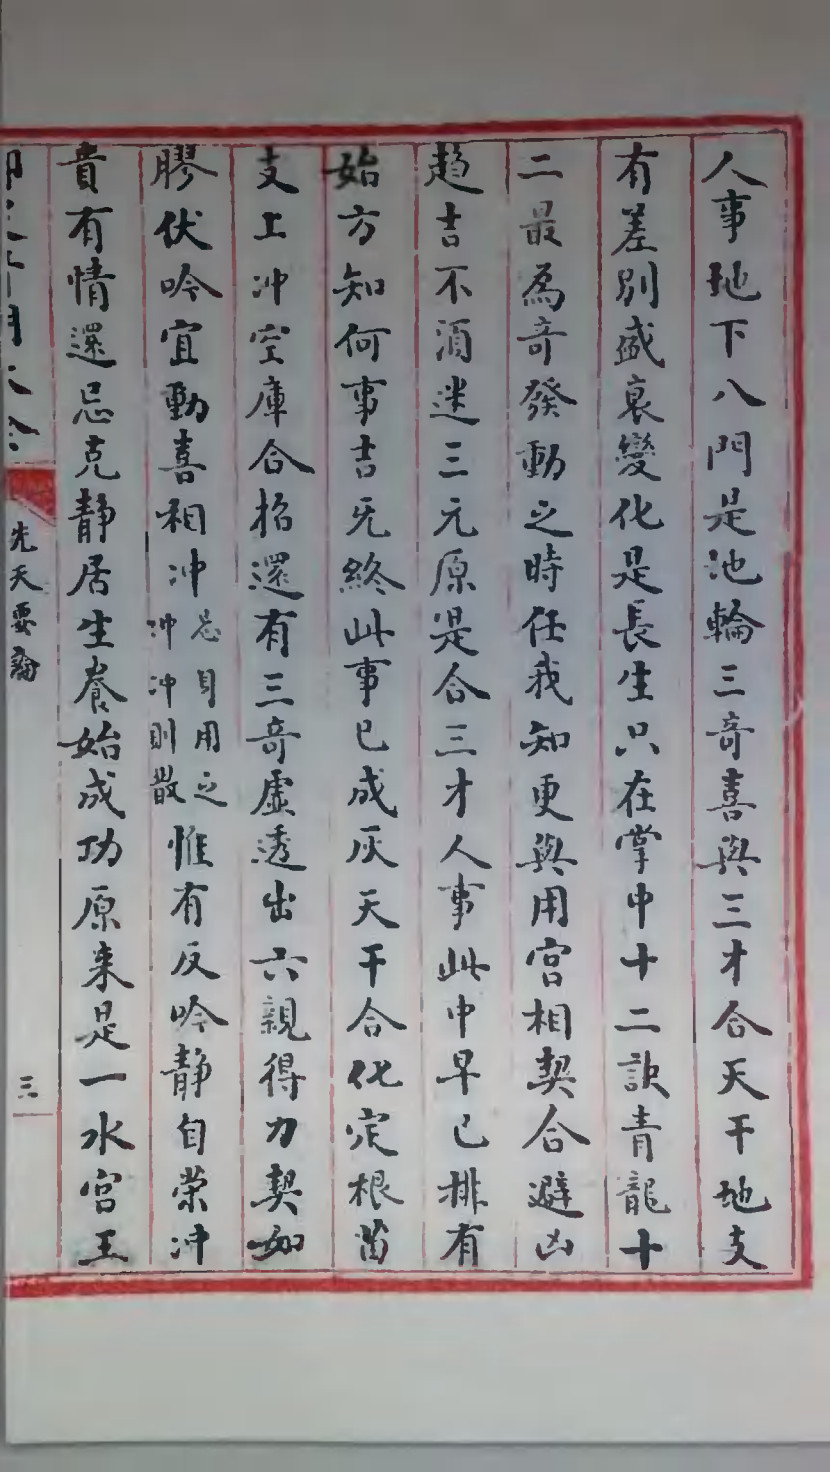 人事地下八門是池輪三奇喜與三才合天干地支
有差別盛衰變化是長生只在掌中十二訣青龍十
二最為奇發動之時任我知更與用宮相契合避凶
趋吉不須迷三元原是合三才人事此中早已排有
始方知何事吉旡終此事已成灰天干合化定根苗
支上冲空庫合招還有三奇虛透出六親得力契如
膠伏吟宜動喜相冲
忌自用之
冲冲則散
惟有反吟靜自荣冲
貴有情還忌克靜居生養始成功原来是一水宫王
先天要論
三